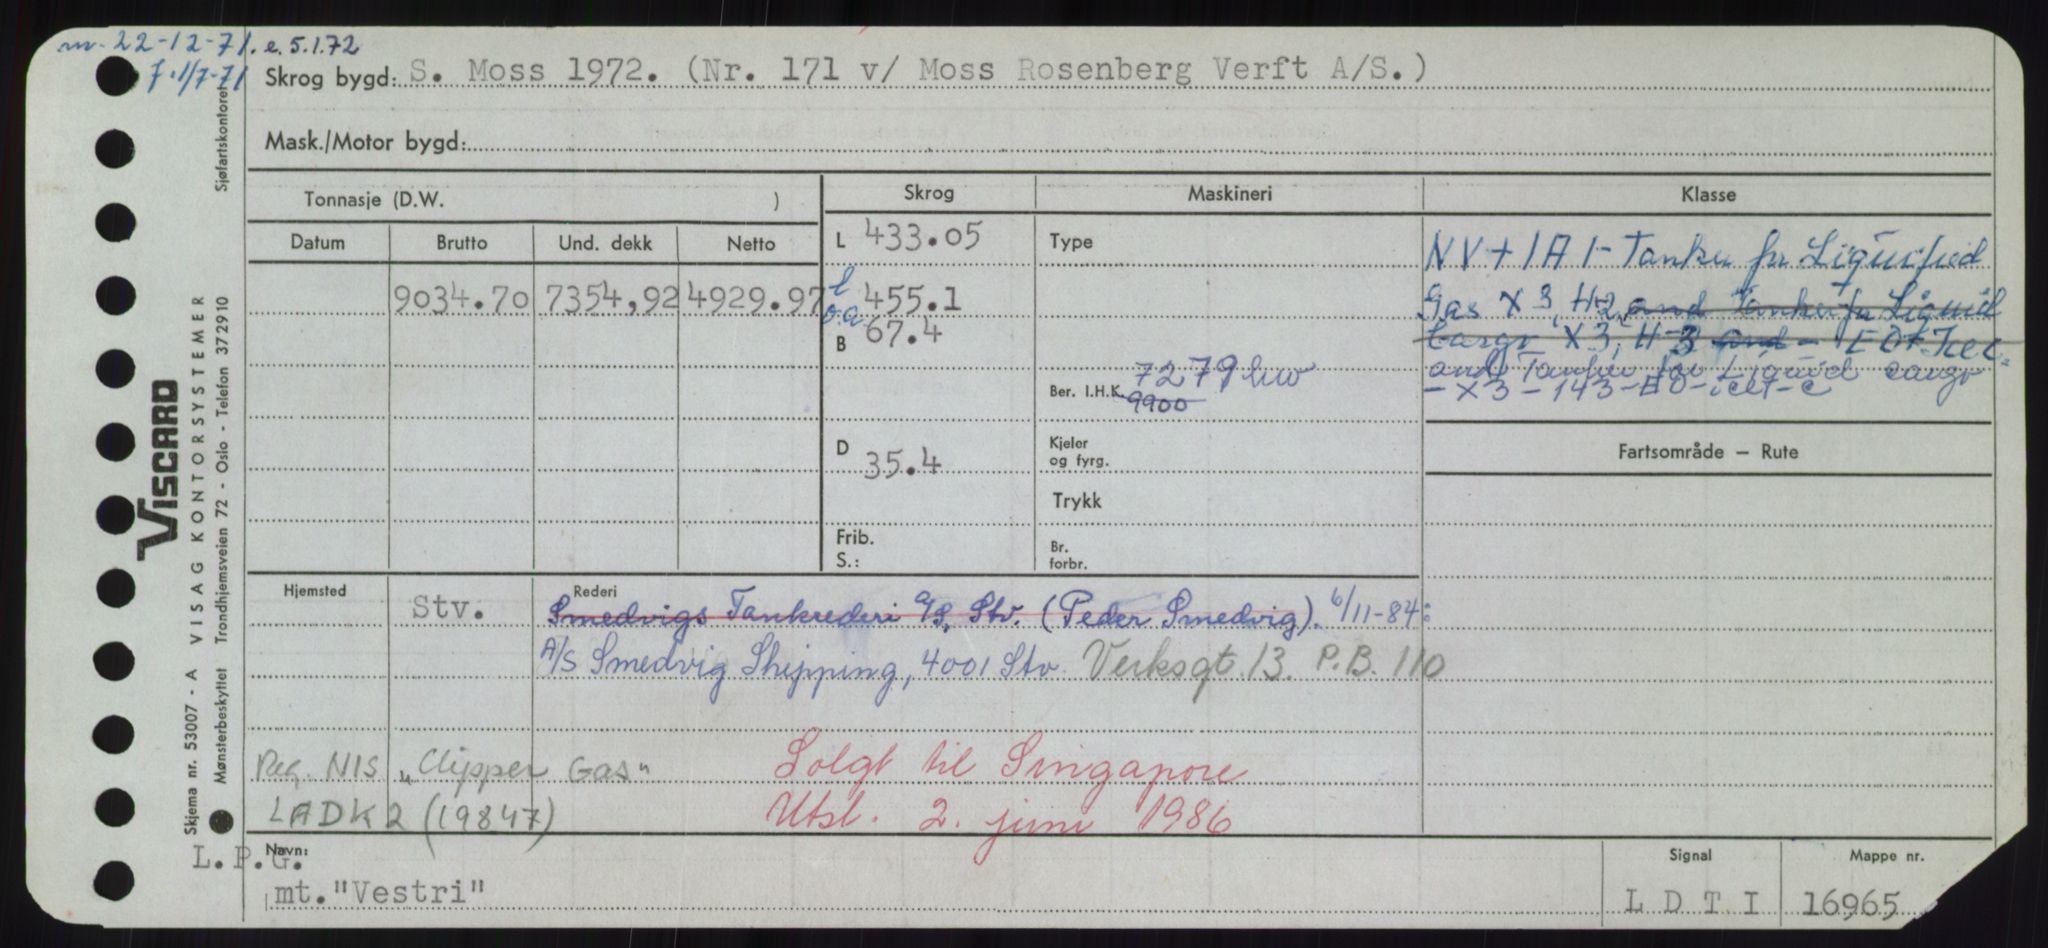 m. 22-12-71. e. 5.1.72
f. 1/7-71
Skrog bygd: S. Moss 1972. (Nr. 171 v/ Moss Rosenberg Verft A/S.)
Mask./Motor bygd:
Tonnasje (D.W. )
Skrog
Maskineri
Klasse
Datum
Brutto
Und. dekk
Netto
9034.70
7354,92
4929.97
L 433.05
l o.a. 455.1
B 67.4
D 35.4
Frib.
S.:
Type
Ber. I.H.K. 7279 kw
9900
Kjeler
og fyrg.
Trykk
Br.
forbr.
NV+1A1-Tanker for Liquified
Gas X3, H2, and Tanker for Liquid
Cargo X3, H-3 and - EO+Ice C
and Tanker for Liquid cargo
-X3-143-EO-ice-C
Fartsområde – Rute
Hjemsted
Stv.
Rederi
Smedvigs Tankrederi a/s, Stv. (Peder Smedvig). 6/11-84:
A/S Smedvig Shipping, 4001 Stv. Verksgt. 13. P.B. 110
Reg. NIS "Clipper Gas"
LADK2 (19847)
Solgt til Singapore
Utsl. 2. juni 1986
L.P.G.
Navn:
mt."Vestri"
Signal
L D T I
Mappe nr.
16965
VISCARD
Skjema nr. 53007 - A VISAG KONTORSYSTEMER
Mønsterbeskyttet Trondhjemsveien 72 - Oslo - Telefon 372910
Sjøfartskontoret